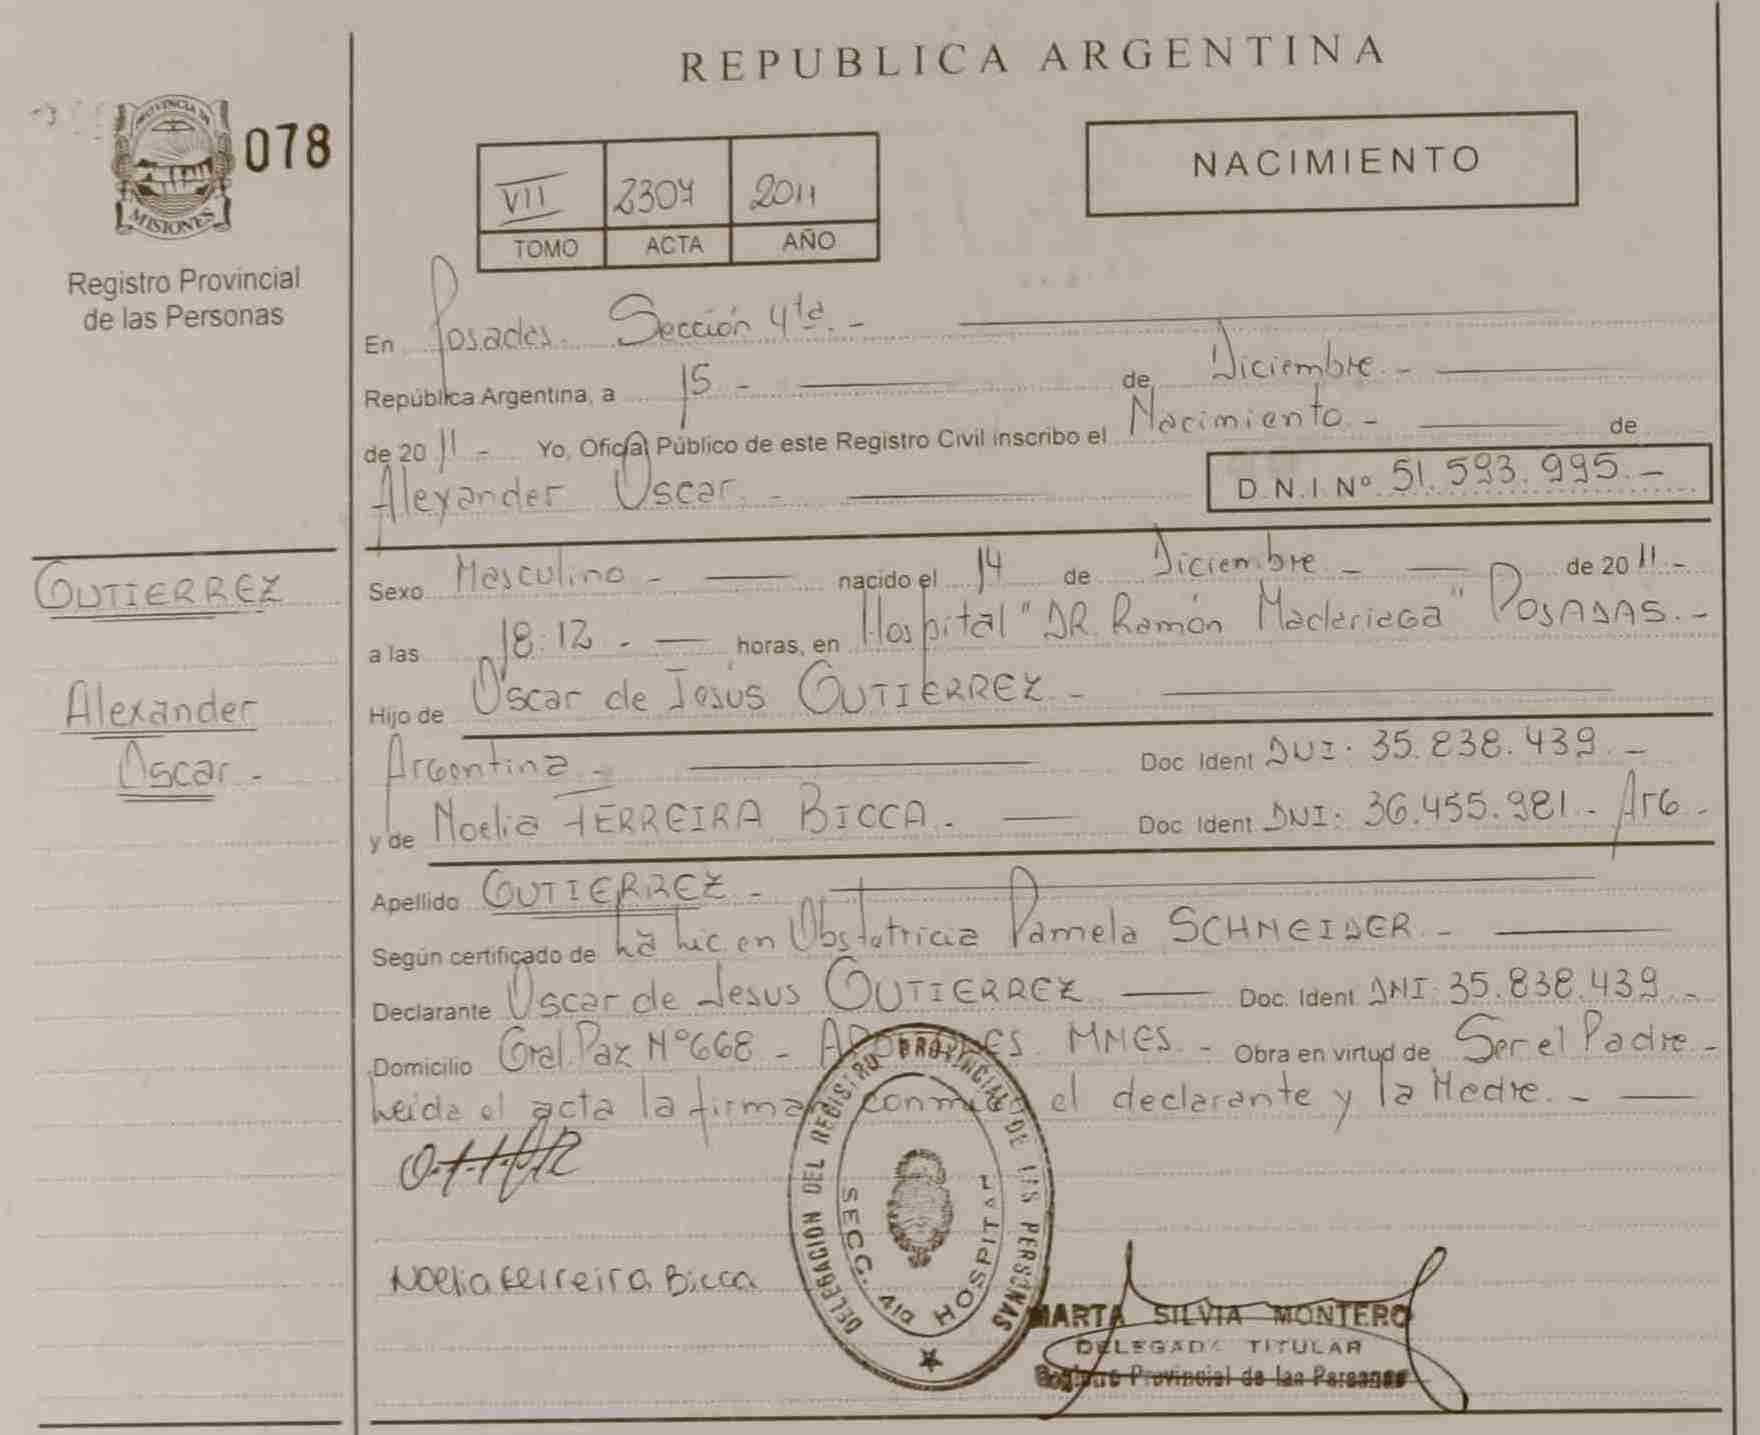 REPUBLICA ARGENTINA
PROVINCIA DE
MISIONES
078
Registro Provincial
de las Personas
VII 2307 2011
TOMO ACTA AÑO
NACIMIENTO
En Posadas. Sección 4ta. -
República Argentina, a 15 - de Diciembre. -
de 2011 - Yo, Oficial Público de este Registro Civil inscribo el Nacimiento - de
Alexander Oscar. - D.N.I Nº 51.593.995. -
GUTIERREZ
Alexander
Oscar -
Sexo Masculino - nacido el 14 de Diciembre - de 2011. -
a las 18:12 - horas, en Hospital "DR. Ramón Madariaga" POSADAS. -
Hijo de Oscar de Jesús GUTIERREZ -
Argentina - Doc Ident DNI: 35.838.439. -
y de Noelia FERREIRA BICCA. - Doc Ident DNI: 36.455.981 - Arg -
Apellido GUTIERREZ -
Según certificado de la lic en Obstetricia Pamela SCHNEIDER -
Declarante Oscar de Jesus GUTIERREZ Doc. Ident DNI: 35.838.439 -
Domicilio Gral. Paz Nº 668 - MNES. - Obra en virtud de Ser el Padre -
Leida el acta la firman conmigo el declarante y la Madre. -
Noelia Ferreira Bicca
DELEGACION DEL REGISTRO PROVINCIAL DE LAS PERSONAS
SECC. 4ta HOSPITAL
MARTA SILVIA MONTERO
DELEGADA TITULAR
Registro Provincial de las Personas